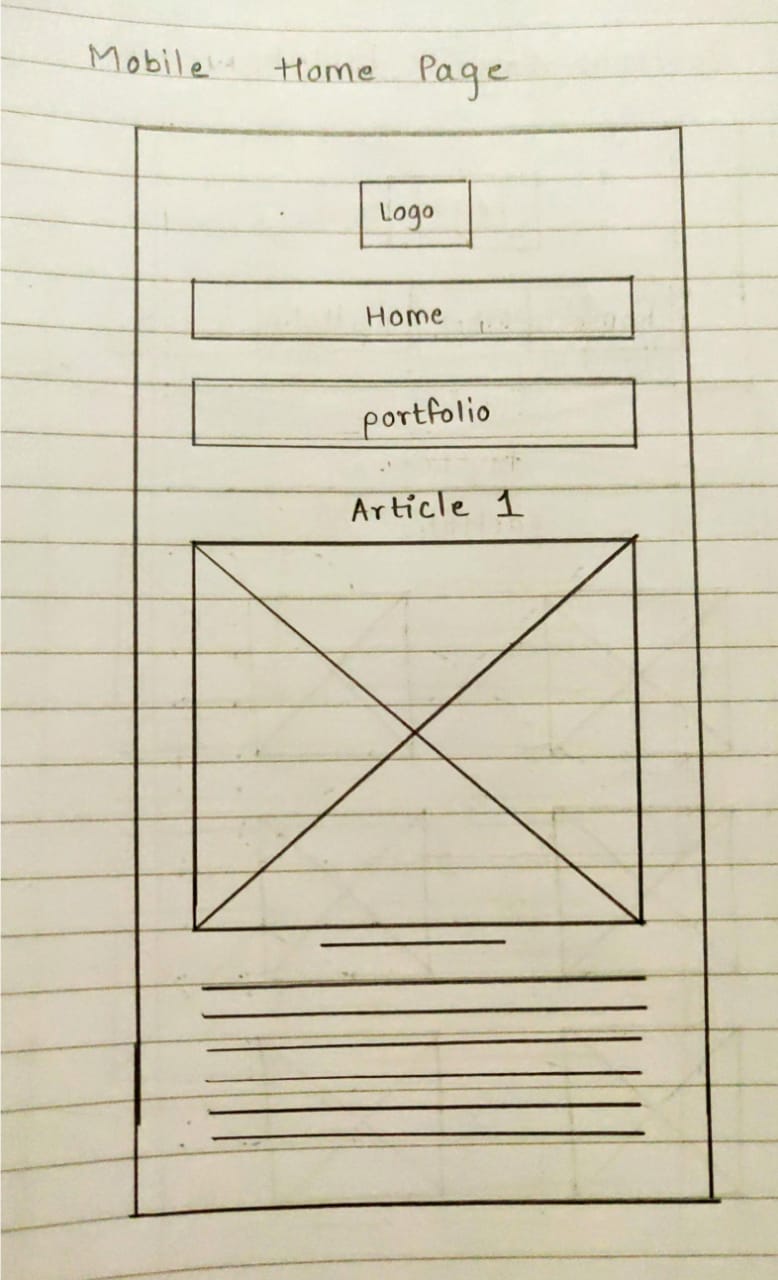 Mobile Home Page
Logo
Home
portfolio
Article 1